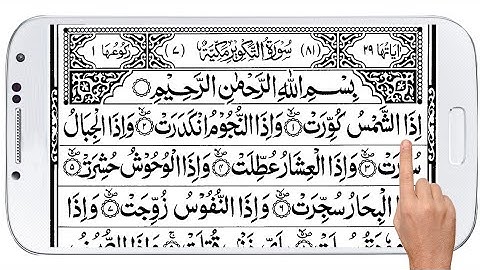 اٰیاتُهَا ۲۹ (۸۱) سُوْرَةُ التَّكْوِيْرِ مَكِّيَّةٌ (۷) رُكُوْعُهَا ۱
بِسْمِ اللّٰهِ الرَّحْمٰنِ الرَّحِيْمِ
اِذَا الشَّمْسُ كُوِّرَتْ ۱ وَاِذَا النُّجُوْمُ انْكَدَرَتْ ۲ وَاِذَا الْجِبَالُ
سُيِّرَتْ ۳ وَاِذَا الْعِشَارُ عُطِّلَتْ ۴ وَاِذَا الْوُحُوْشُ حُشِرَتْ ۵
وَاِذَا الْبِحَارُ سُجِّرَتْ ۶ وَاِذَا النُّفُوْسُ زُوِّجَتْ ۷ وَاِذَا